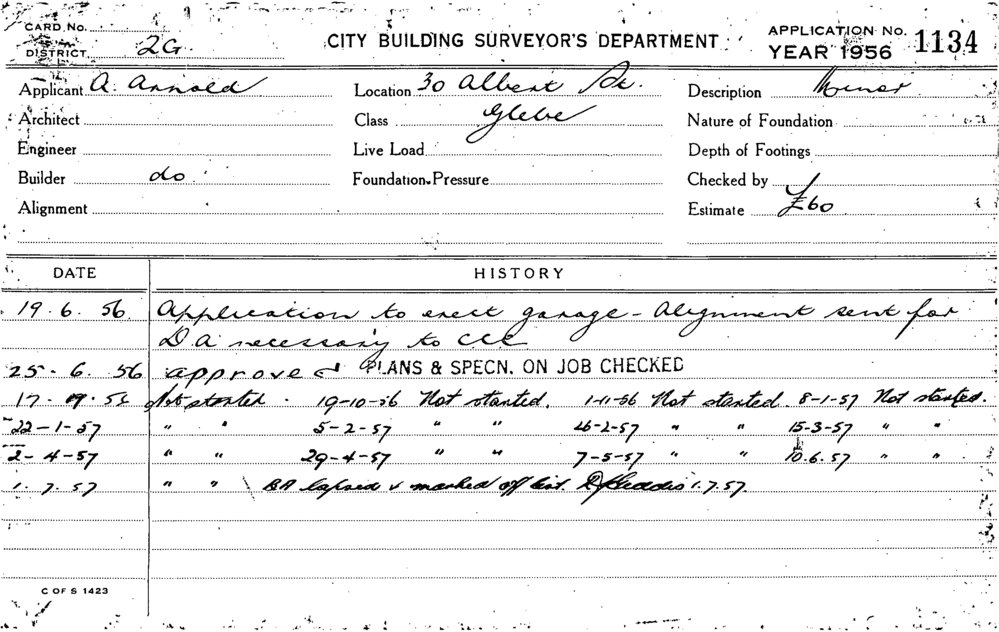 CARD No.
DISTRICT 2G
CITY BUILDING SURVEYOR'S DEPARTMENT
APPLICATION No. 1134
YEAR 1956
Applicant A. Arnold
Location 30 Albert St.
Description Minor
Architect
Class Glebe
Nature of Foundation
Engineer
Live Load
Depth of Footings
Builder do
Foundation Pressure
Checked by
Alignment
Estimate £60
DATE HISTORY
19.6.56 Application to erect garage - Alignment sent for
D A necessary to CCC
25-6.56 approved PLANS & SPECN. ON JOB CHECKED
17-9.56 Not started. 19-10-56 Not started. 1-11-56 Not started. 8-1-57 Not started.
22-1-57 " " 5-2-57 " " 26-2-57 " " 15-3-57 " "
2-4-57 " " 29-4-57 " " 7-5-57 " " 10.6.57 " "
1.7.57 " " BA lapsed & marked off list. 1.7.57.
C OF S 1423